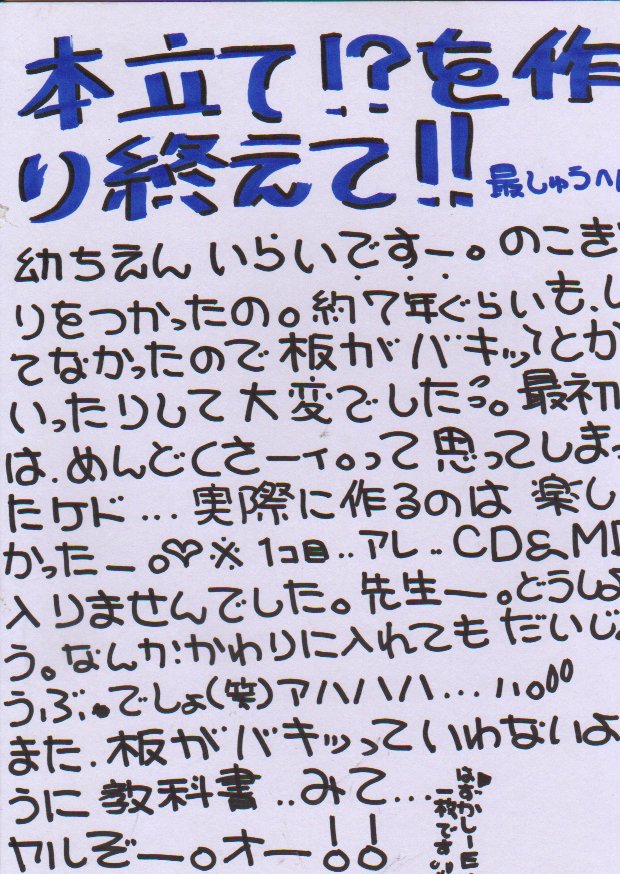 本立て!?を作
り終えて!! 最しゅうへん
幼ちえんいらいですー。のこぎ
りをつかったの。約7年ぐらいも、し
てなかったので板がバキッとか
いったりして大変でしたっ。最初
は、めんどくさーィ。って思ってしまっ
たケド…実際に作るのは楽し
かったー。♡※1コ目..アレ..CD&MD
入りませんでした。先生ー。どうしよ
う。なんかかわりに入れてもだいじょ
うぶ。でしょ(笑)アハハハ…ハ。
また、板がバキッっていわないよ
うに教科書..みて…
ヤルぞー。オー!!
はずかしー
一枚です